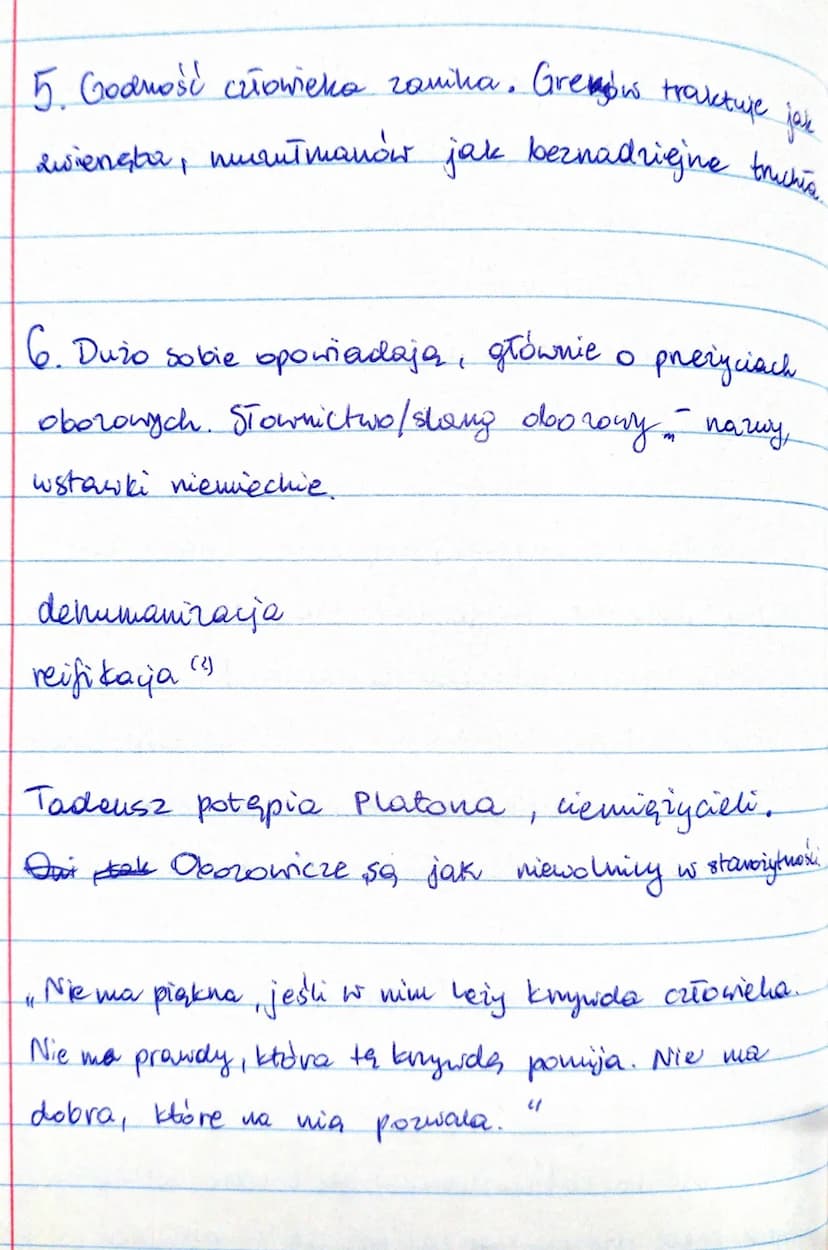 5. Godność człowieka zanika. Greków traktuje jak
zwierzęta, muzułmanów jak beznadziejne truchła.
6. Dużo sobie opowiadają, głównie o przeżyciach
obozowych. Słownictwo/slang obozowy - nazwy,
wstawki niemieckie.
dehumanizacja
reifikacja (?)
Tadeusz potępia Platona, ciemiężycieli.
Oni tak Obozowicze są jak niewolnicy w starożytności
„Nie ma piękna, jeśli w nim leży krzywda człowieka.
Nie ma prawdy, która tę krzywdę pomija. Nie ma
dobra, które na nią pozwala."